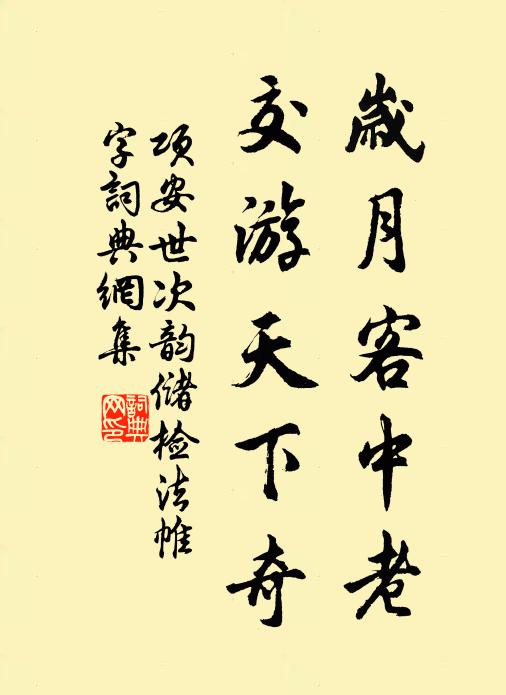 歲月客中老
交游天下奇
項安世次韵儲检法帷
字詞典網集
詞典
网印